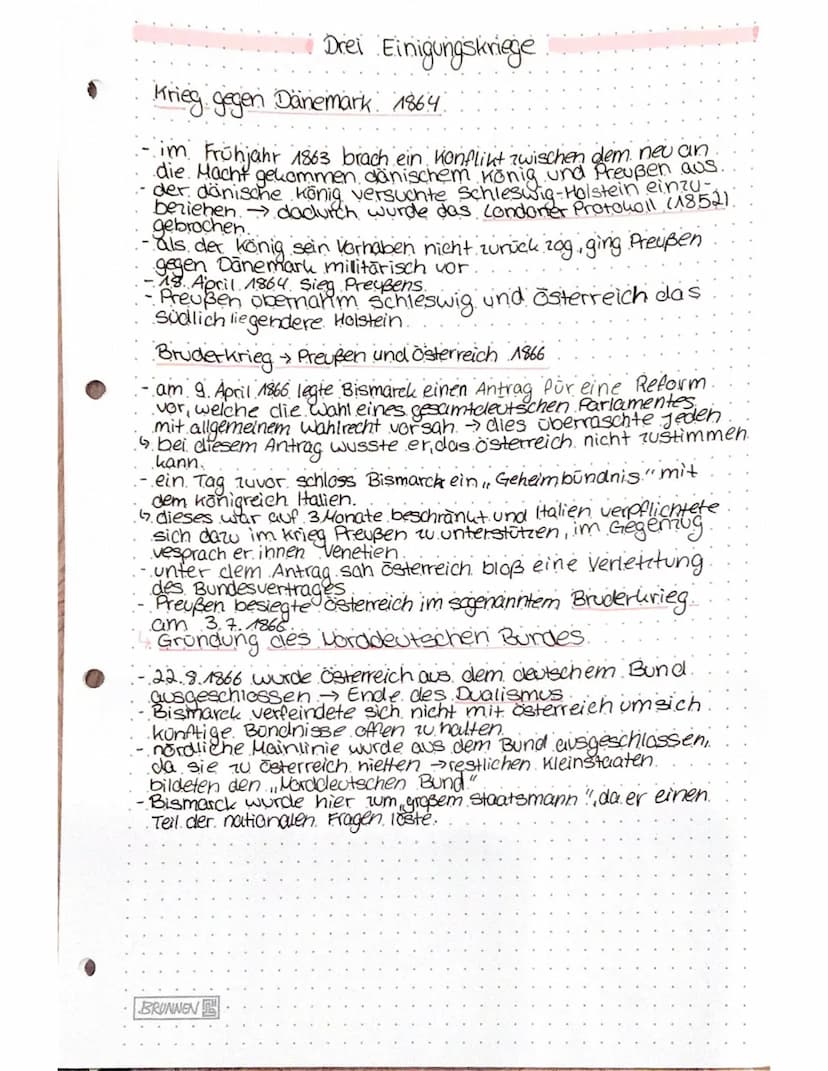 Drei Einigungskriege
Krieg gegen Dänemark 1864
- im Frühjahr 1863 brach ein Konflikt zwischen dem neu an
die Macht gekommen dänischem König und Preußen aus.
- der dänische König versuchte Schleswig-Holstein einzu-
beziehen → dadurch wurde das Londoner Protokoll (1852)
gebrochen.
- als der König sein Vorhaben nicht zurück zog, ging Preußen
gegen Dänemark militärisch vor
- 18. April 1864 Sieg Preußens
- Preußen übernahm Schleswig und Österreich das
südlich liegendere Holstein
Bruderkrieg → Preußen und Österreich 1866
- am 9. April 1866 legte Bismarck einen Antrag für eine Reform
vor, welche die Wahl eines gesamtdeutschen Parlamentes
mit allgemeinem Wahlrecht vorsah → dies überraschte jeden
↳ bei diesem Antrag wusste er, das Österreich nicht zustimmen
kann.
- ein Tag zuvor schloss Bismarck ein „Geheimbündnis" mit
dem Königreich Italien.
↳ dieses war auf 3 Monate beschränkt und Italien verpflichtete
sich dazu im Krieg Preußen zu unterstützen, im Gegenzug
vesprach er ihnen Venetien
- unter dem Antrag sah Österreich bloß eine Verletztung
des Bundesvertrages
- Preußen besiegte Österreich im sogenanntem Bruderkrieg
am 3.7.1866
↳ Gründung des Norddeutschen Bundes
- 22.8.1866 wurde Österreich aus dem deutschem Bund
ausgeschlossen → Ende des Dualismus
- Bismarck verfeindete sich nicht mit Österreich um sich
künftige Bündnisse offen zu halten
- nördliche Mainlinie wurde aus dem Bund ausgeschlossen,
da sie zu Österreich hielten → restlichen Kleinstaaten
bildeten den „Norddeutschen Bund"
- Bismarck wurde hier zum „großem Staatsmann", da er einen
Teil der nationalen Fragen löste.
BRUNNEN